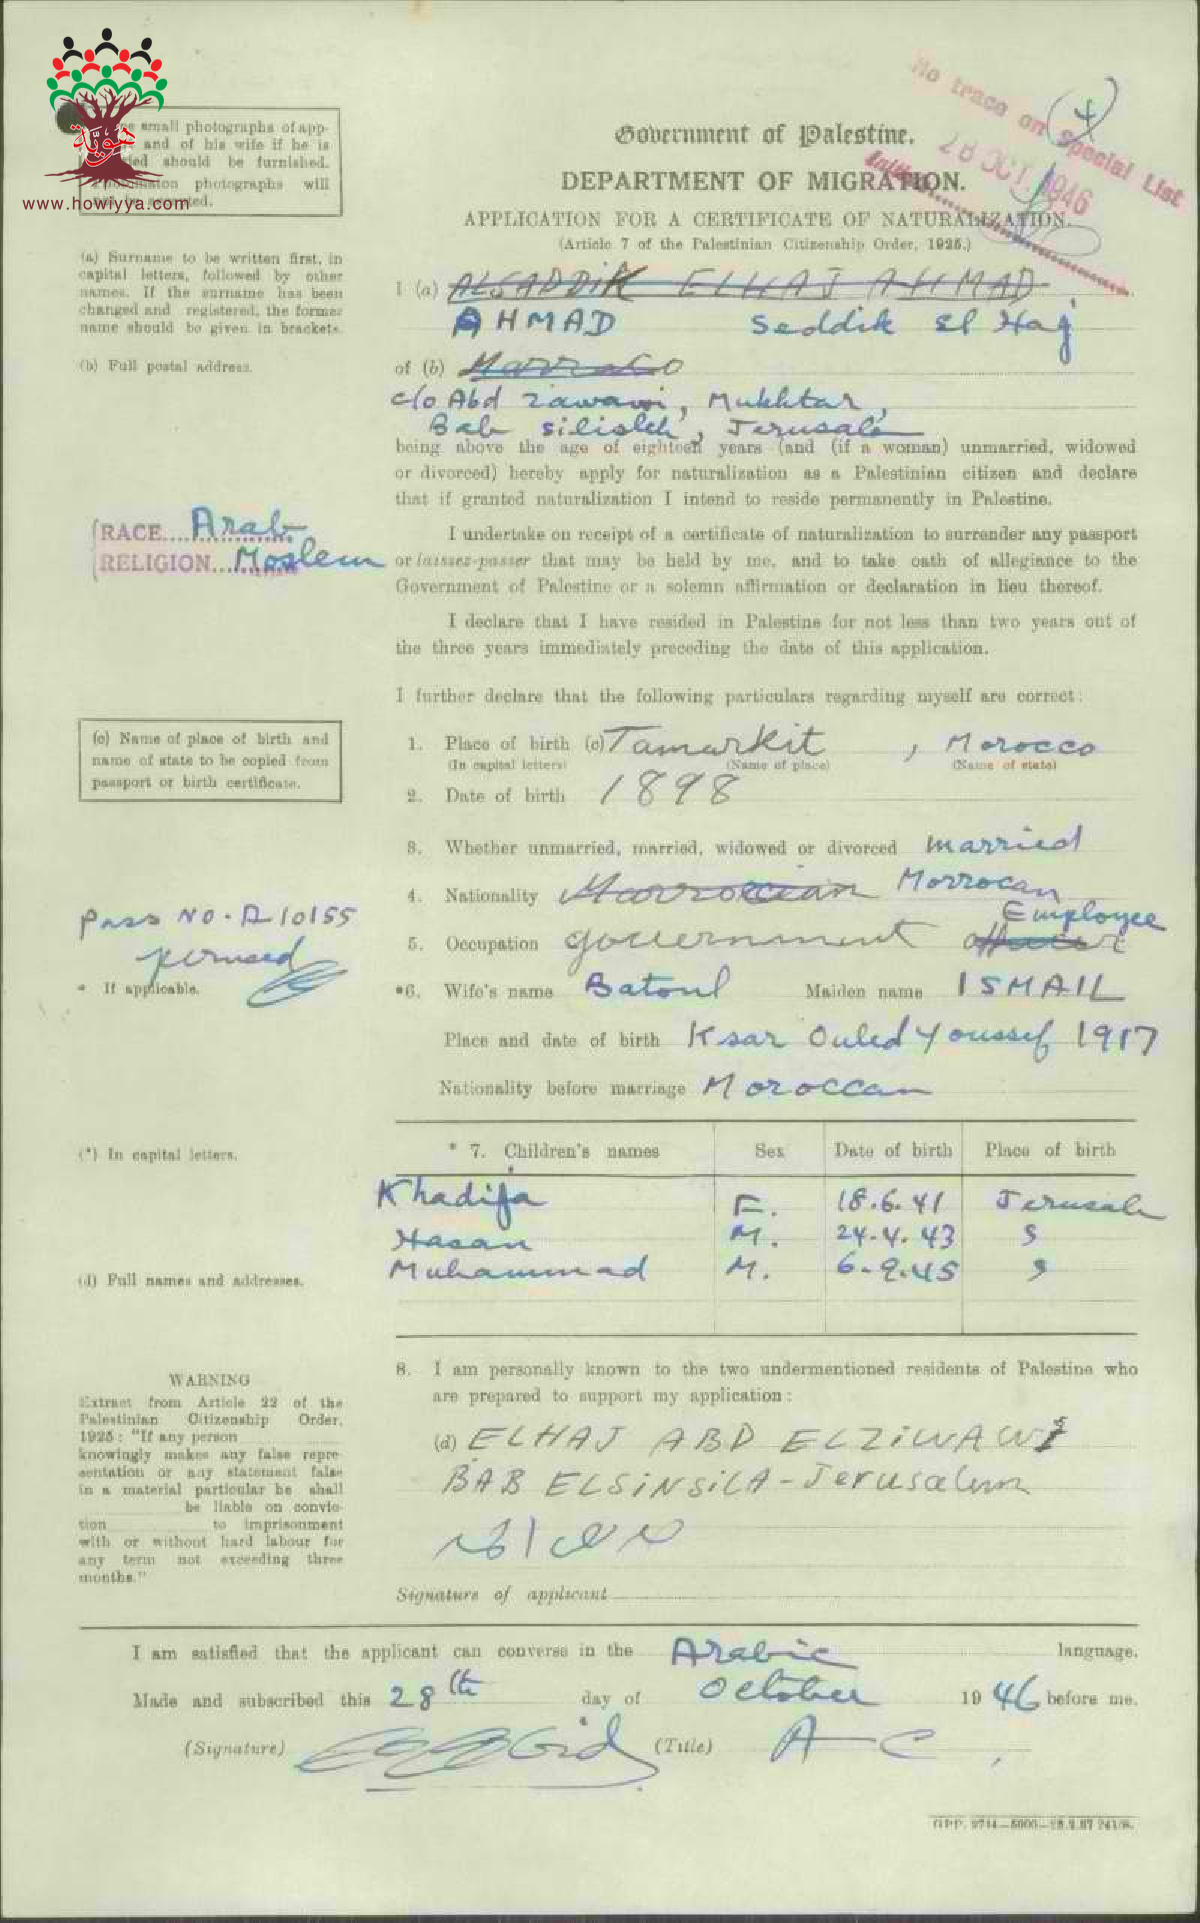 هويّة
www.howiyya.com
No trace on Special List
28 OCT 1946
4
small photographs of app-
and of his wife if he is
should be furnished.
photographs will
Government of Palestine.
DEPARTMENT OF MIGRATION.
APPLICATION FOR A CERTIFICATE OF NATURALIZATION.
(Article 7 of the Palestinian Citizenship Order, 1925.)
(a) Surname to be written first, in
capital letters, followed by other
names. If the surname has been
changed and registered, the former
name should be given in brackets.
I (a) ALSADDIK ELHAJ AHMAD
AHMAD Seddik El Haj
(b) Full postal address.
of (b)
c/o Abd Zawawi, Mukhtar,
Bab Silisleh, Jerusalem
being above the age of eighteen years (and (if a woman) unmarried, widowed
or divorced) hereby apply for naturalization as a Palestinian citizen and declare
that if granted naturalization I intend to reside permanently in Palestine.
RACE.... Arab
RELIGION.... Moslem
I undertake on receipt of a certificate of naturalization to surrender any passport
or laissez-passer that may be held by me, and to take oath of allegiance to the
Government of Palestine or a solemn affirmation or declaration in lieu thereof.
I declare that I have resided in Palestine for not less than two years out of
the three years immediately preceding the date of this application.
I further declare that the following particulars regarding myself are correct:
(c) Name of place of birth and
name of state to be copied from
passport or birth certificate.
1. Place of birth (c) Tamarkit , Morocco
(In capital letters) (Name of place) (Name of state)
2. Date of birth 1898
3. Whether unmarried, married, widowed or divorced married
4. Nationality Marroccian Morrocan
Pass No. A 10155
perused
5. Occupation government officer Employee
* If applicable.
*6. Wife's name Batoul Maiden name ISMAIL
Place and date of birth Ksar Ouled Youssef 1917
Nationality before marriage Moroccan
(*) In capital letters.
* 7. Children's names Sex Date of birth Place of birth
Khadija F. 18.6.41 Jerusalem
Hasan M. 24.4.43 "
Muhammad M. 6.9.45 "
(d) Full names and addresses.
8. I am personally known to the two undermentioned residents of Palestine who
are prepared to support my application:
(d) ELHAJ ABD ELZiWAWi
BAB ELSiNSilA - Jerusalem
WARNING
Extract from Article 22 of the
Palestinian Citizenship Order,
1925: "If any person
knowingly makes any false repre-
sentation or any statement false
in a material particular be shall
be liable on convic-
tion to imprisonment
with or without hard labour for
any term not exceeding three
months."
Signature of applicant
I am satisfied that the applicant can converse in the Arabic language.
Made and subscribed this 28th day of October 1946 before me.
(Signature) (Title) A C
GPP. 9744—5000—28.2.87 241/S.